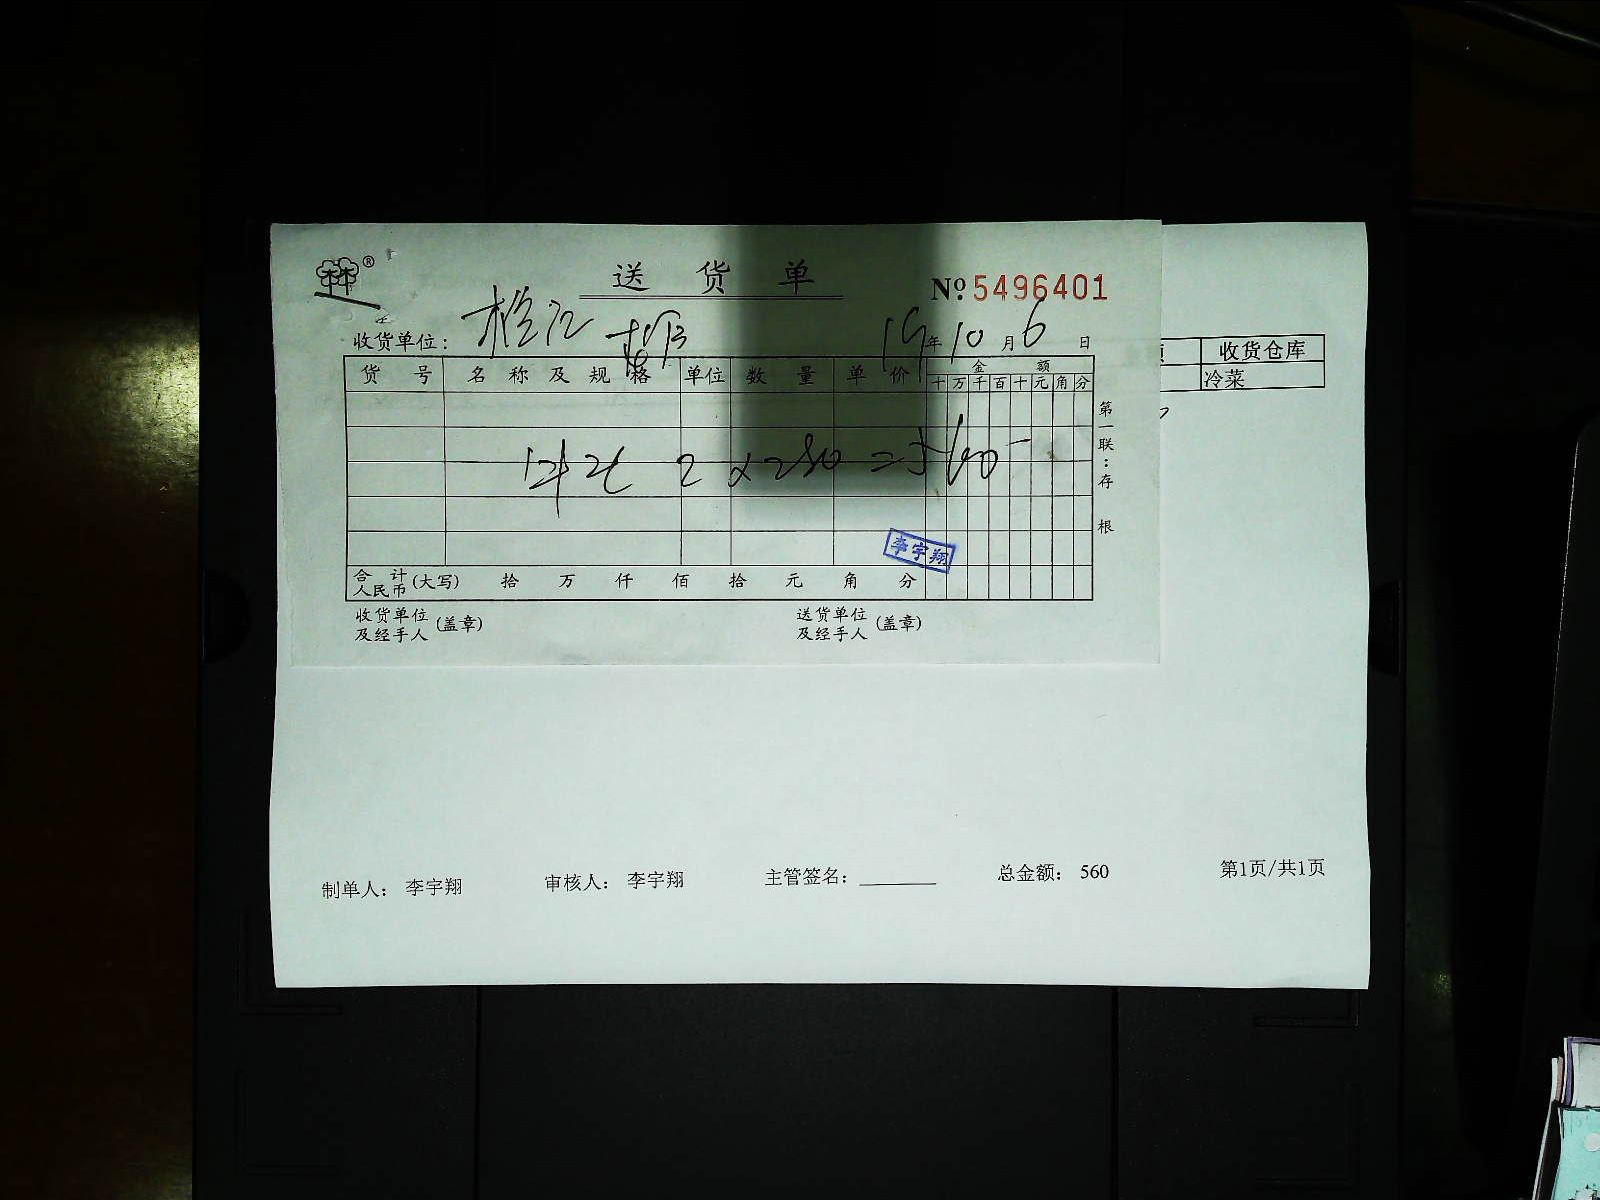 送货单
№ 5496401
收货单位：
19年10月6日
收货仓库
货号 名称及规格 单位 数量 单价 金额
十万千百十元角分
冷菜
2 × 280 = 560
第一联：存根
李宇翔
合计人民币(大写) 拾 万 仟 佰 拾 元 角 分
收货单位及经手人(盖章) 送货单位及经手人(盖章)
制单人： 李宇翔 审核人： 李宇翔 主管签名： 总金额： 560 第1页/共1页